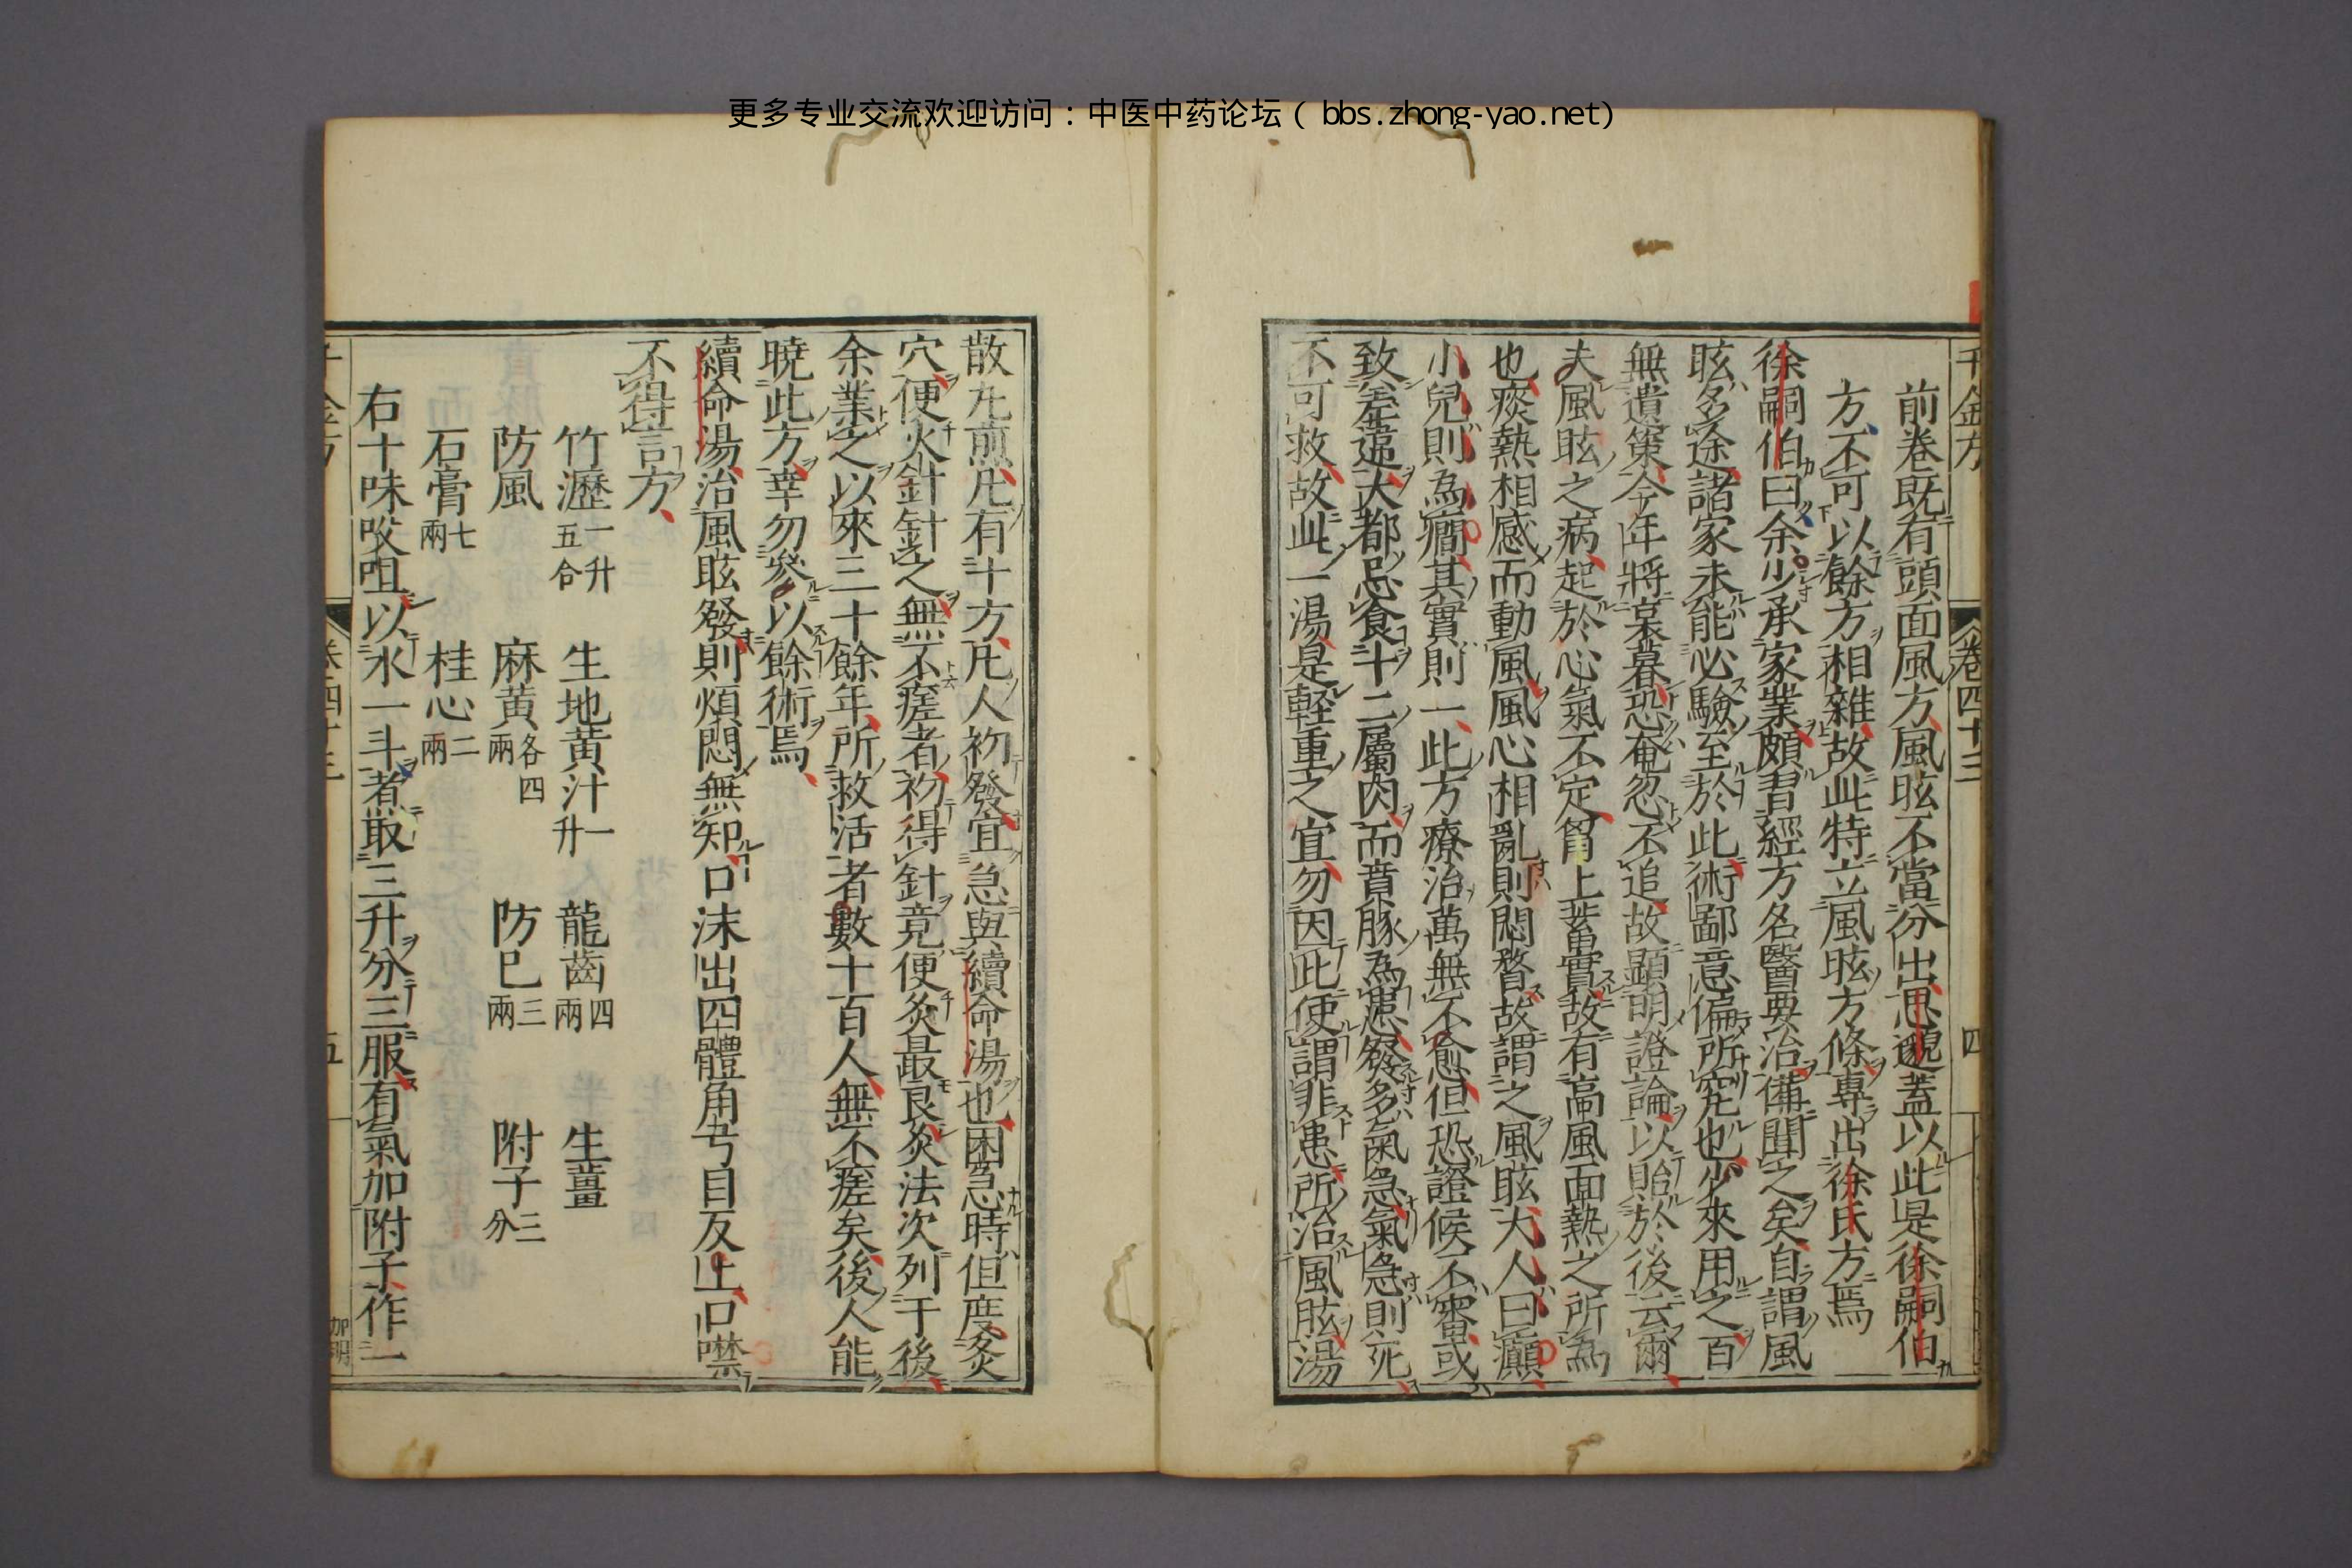 更多专业交流欢迎访问：中医中药论坛（bbs.zhong-yao.net)
千金方 卷四十三 四
前卷既有頭面風方風眩不當分出思邈蓋以此是徐嗣伯
方不可以餘方相雜故此特立風眩方條專出徐氏方焉
徐嗣伯曰余少承家業頗習經方名醫要治備聞之矣自謂風
眩多途諸家未能必驗至於此術鄙意偏所究也少來用之百
無遺策今年將衰暮恐奄忽不追故顯明證論以貽於後云爾
夫風眩之病起於心氣不定胷上蓄實故有高風面熱之所為
也痰熱相感而動風風心相亂則悶瞀故謂之風眩大人曰癲
小兒則為癇其實則一此方療治萬無不愈但恐證候不審或
致差違大都忌食十二屬肉而賁豚為患發多氣急氣急則死
不可救故此一湯是輕重之宜勿因此便謂非患所治風眩湯
散丸煎凡有十方凡人初發宜急與續命湯也困急時但度灸
穴便火針針之無不瘥者初得針竟便灸最良灸法次列于後
余業之以來三十餘年所救活者數十百人無不瘥矣後人能
曉此方幸勿參以餘術焉
續命湯治風眩發則煩悶無知口沫出四體角弓目反上口噤
不得言方
竹瀝一升五合 生地黄汁一升 龍齒四兩 生薑
防風 麻黄各四兩 防巳三兩 附子三分
石膏七兩 桂心二兩
右十味㕮咀以水一斗煮取三升分三服有氣加附子作一
五